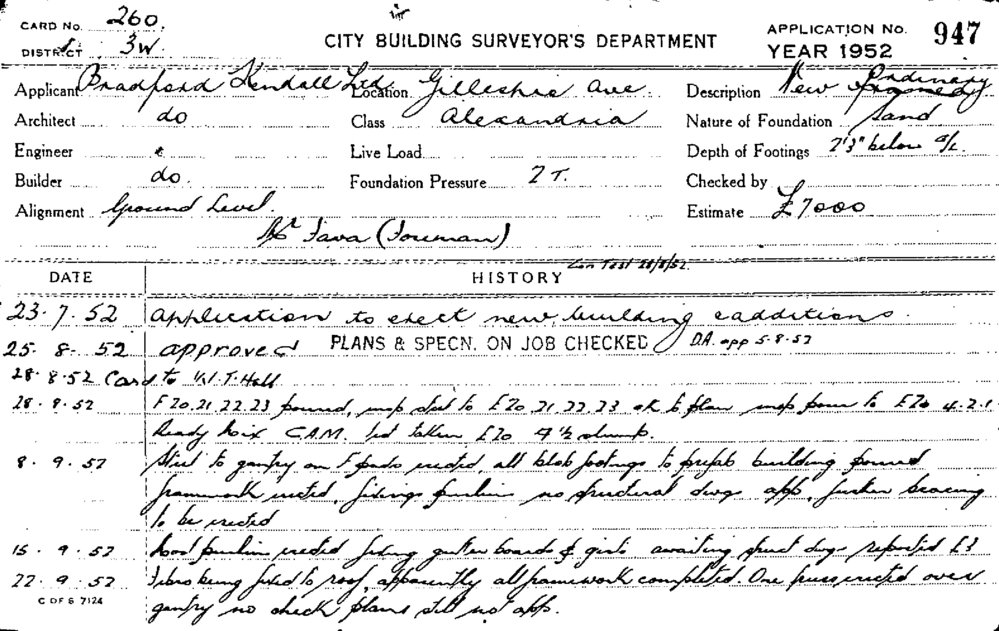 CARD No. 260.
DISTRICT 3W.
CITY BUILDING SURVEYOR'S DEPARTMENT
APPLICATION No. 947
YEAR 1952
Applicant Bradford Kendall Ltd. Location Gillespie Ave. Description New Ordinary
Architect do Class Alexandria Nature of Foundation Sand
Engineer Live Load Depth of Footings 2'3" below G/L.
Builder do. Foundation Pressure 2 T. Checked by
Alignment Ground Level. Estimate £7000
Mr Fava (Foreman)
DATE HISTORY Con Test 28/8/52.
23.7.52 Application to erect new building & additions.
25.8.52 approved PLANS & SPECN. ON JOB CHECKED D.A. app 5.8.52
28.8.52 Card to W.T. Hall
28.8.52 F 20.21.22.23 poured, insp steel to F20.21.22.23 ok to plan insp pour to F20 4.2.1
Ready Mix C.A.M. test taken F20 4½ slump.
8.9.52 Steel to gantry on F pads erected, all blob footings to prefab building poured
framework erected, fixing purlins no structural dwgs app, further bracing
to be erected
15.9.52 Roof purlins erected fixing gutter boards & girts awaiting struct dwgs reported £3
22.9.52 Fibro being fixed to roof, apparently all framework completed. One truss erected over
gantry no check plans still not app.
C OF S 7124